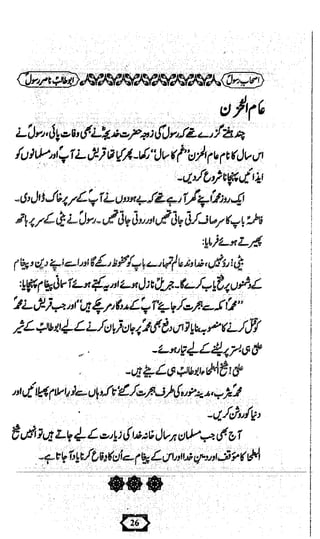 اصحاب رسولؐ
ابو طالبؑ ناصر رسولؐ
عام الحزن
چند ہفتے گزرے تھے کہ رسولؐ کی زوجہ حضرت خدیجہؑ نے بھی وفات پائی، رسولؐ نے
اس سال کا نام عام الحزن ”غم کا سال“ رکھا۔ پھر کیا تھا قریش نے آپؐ اور مسلمانوں کو
ایذائیں پہنچانا شروع کر دیں۔
ایک روز محمدؐ اپنے گھر آ رہے تھے کہ بے ہودوں نے آپؐ کے سر پر خاک ڈال دی۔
فاطمہؑ باپ کا سر صاف کرتی جاتی تھیں اور روتی جاتی تھیں۔ رسولؐ نے بیٹی کے سر پر ہاتھ
پھیرتے ہوئے فرمایا:
بیٹی! رو نہیں، خداوند عالم تمہارے باپ کو محفوظ رکھے گا اور اسے اپنے دین و پیغام
کے دشمنوں پر فتح یاب کرے گا۔ جبریلؑ نازل ہوئے اور یہ کہتے ہوئے آسمانی پیغام پہنچایا:
”محمدؐ! مکہ سے ہجرت کر جائیے آپؐ کے مددگار مر چکے ہیں“ اور جب قریش نے محمدؐ
کو قتل کرنے کا منصوبہ بنایا تو اس دفعہ بھی محمدؐ پر جان قربان کرنے کے لیے ابو طالبؑ کے شیر
علیؑ ہی بستر پر لیٹنے کے لیے تیار ہوئے۔
علیؑ، شیخ البطحا ابو طالبؑ ہی کے بیٹے ہیں۔
محمدؐ یثرب، مدینہ منورہ کی طرف ہجرت کر گئے تاکہ وہاں سے نور اسلام پھیلائیں اور
دنیا کو روشن کریں۔
آج بھی جب مسلمان ہر سال خانہ خدا کی زیارت کے لیے جاتے ہیں تو انہیں شیخ
البطحا کا مؤقف اور دین خدا اور اس کے پیغام سے اُن کا دفاع کرنا یاد آ جاتا ہے۔
26